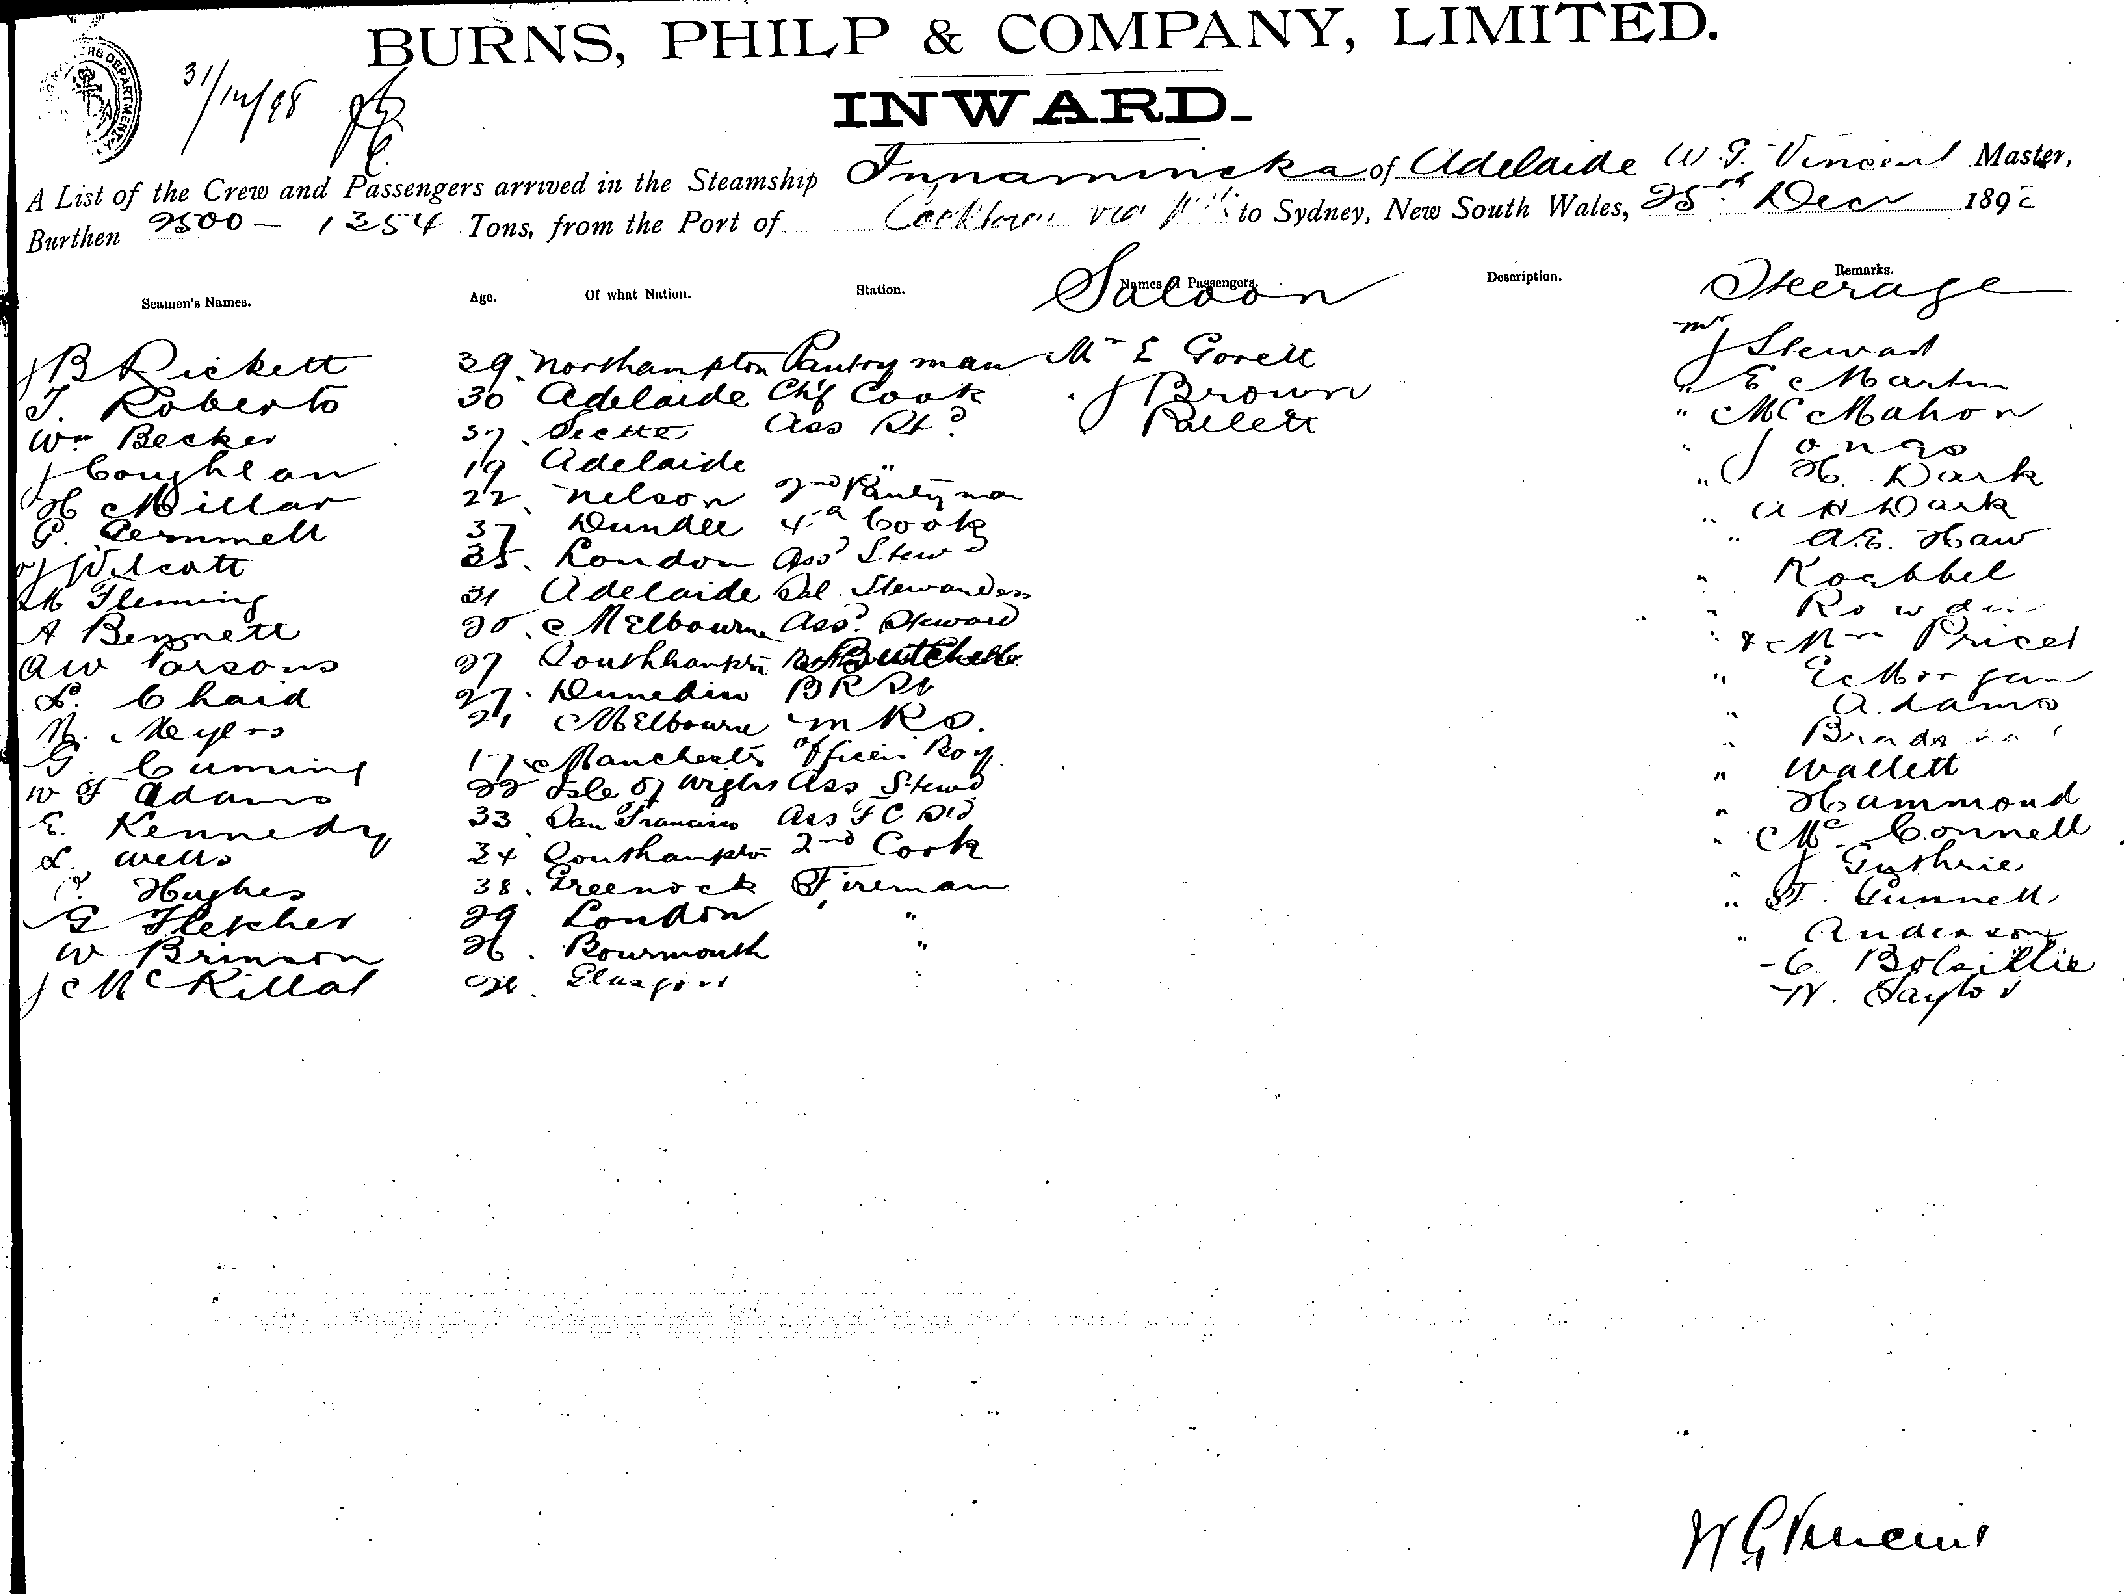 BURNS, PHILP & COMPANY, LIMITED.
31/12/98
INWARD.
A List of the Crew and Passengers arrived in the Steamship Innamincka of Adelaide W. G. Vincent Master,
Burthen 2500 – 1354 Tons, from the Port of Cooktown via to Sydney, New South Wales, 25th Decr 189
Seamen's Names. Age. Of what Nation. Station. Names of Passengers. Description. Remarks.
Saloon Steerage
J B Rickett 39 Northampton Pantry man Mr E Gorett Mr J Stewart
T. Roberts 30 Adelaide Chf Cook " J Brown " E Martin
Wm Becker 37 Ass St'd Pallett " McMahon
J Coughlan 19 Adelaide " " Jones
H Millar 22 Nelson 2nd Pantryman " H. Dark
G. Gemmell 37 Dundee 4th Cook " A H Dark
J Wilcott 35. London Ass Stewd " A.E. Haw
M Fleming 31 Adelaide Sal Stewardess " Koebbel
A Bennett 20. Melbourne Ass. Steward " Rowdin
A W Parsons 27 Southampton Butcher " & Mrs Price
L. Chaid 27. Dunedin B R St " E Morgan
N. Meyers 21 Melbourne M R S. " Adams
G. Cuming 17 Manchester Officers Boy "
W F Adams 22 Isle of Wight Ass Stewd " Wallett
E. Kennedy 33 San Francisco Ass F C Std " Hammond
L. Wells 34 Southampton 2nd Cook " McConnell
Hughes 38. Greenock Fireman " J Guthrie
G Fletcher 29 London " " F. Gunnell
W Brinson 26. Bourmouth " " Anderson
J McKillot Glasgow " " C
" W. Taylor
W G Vincent